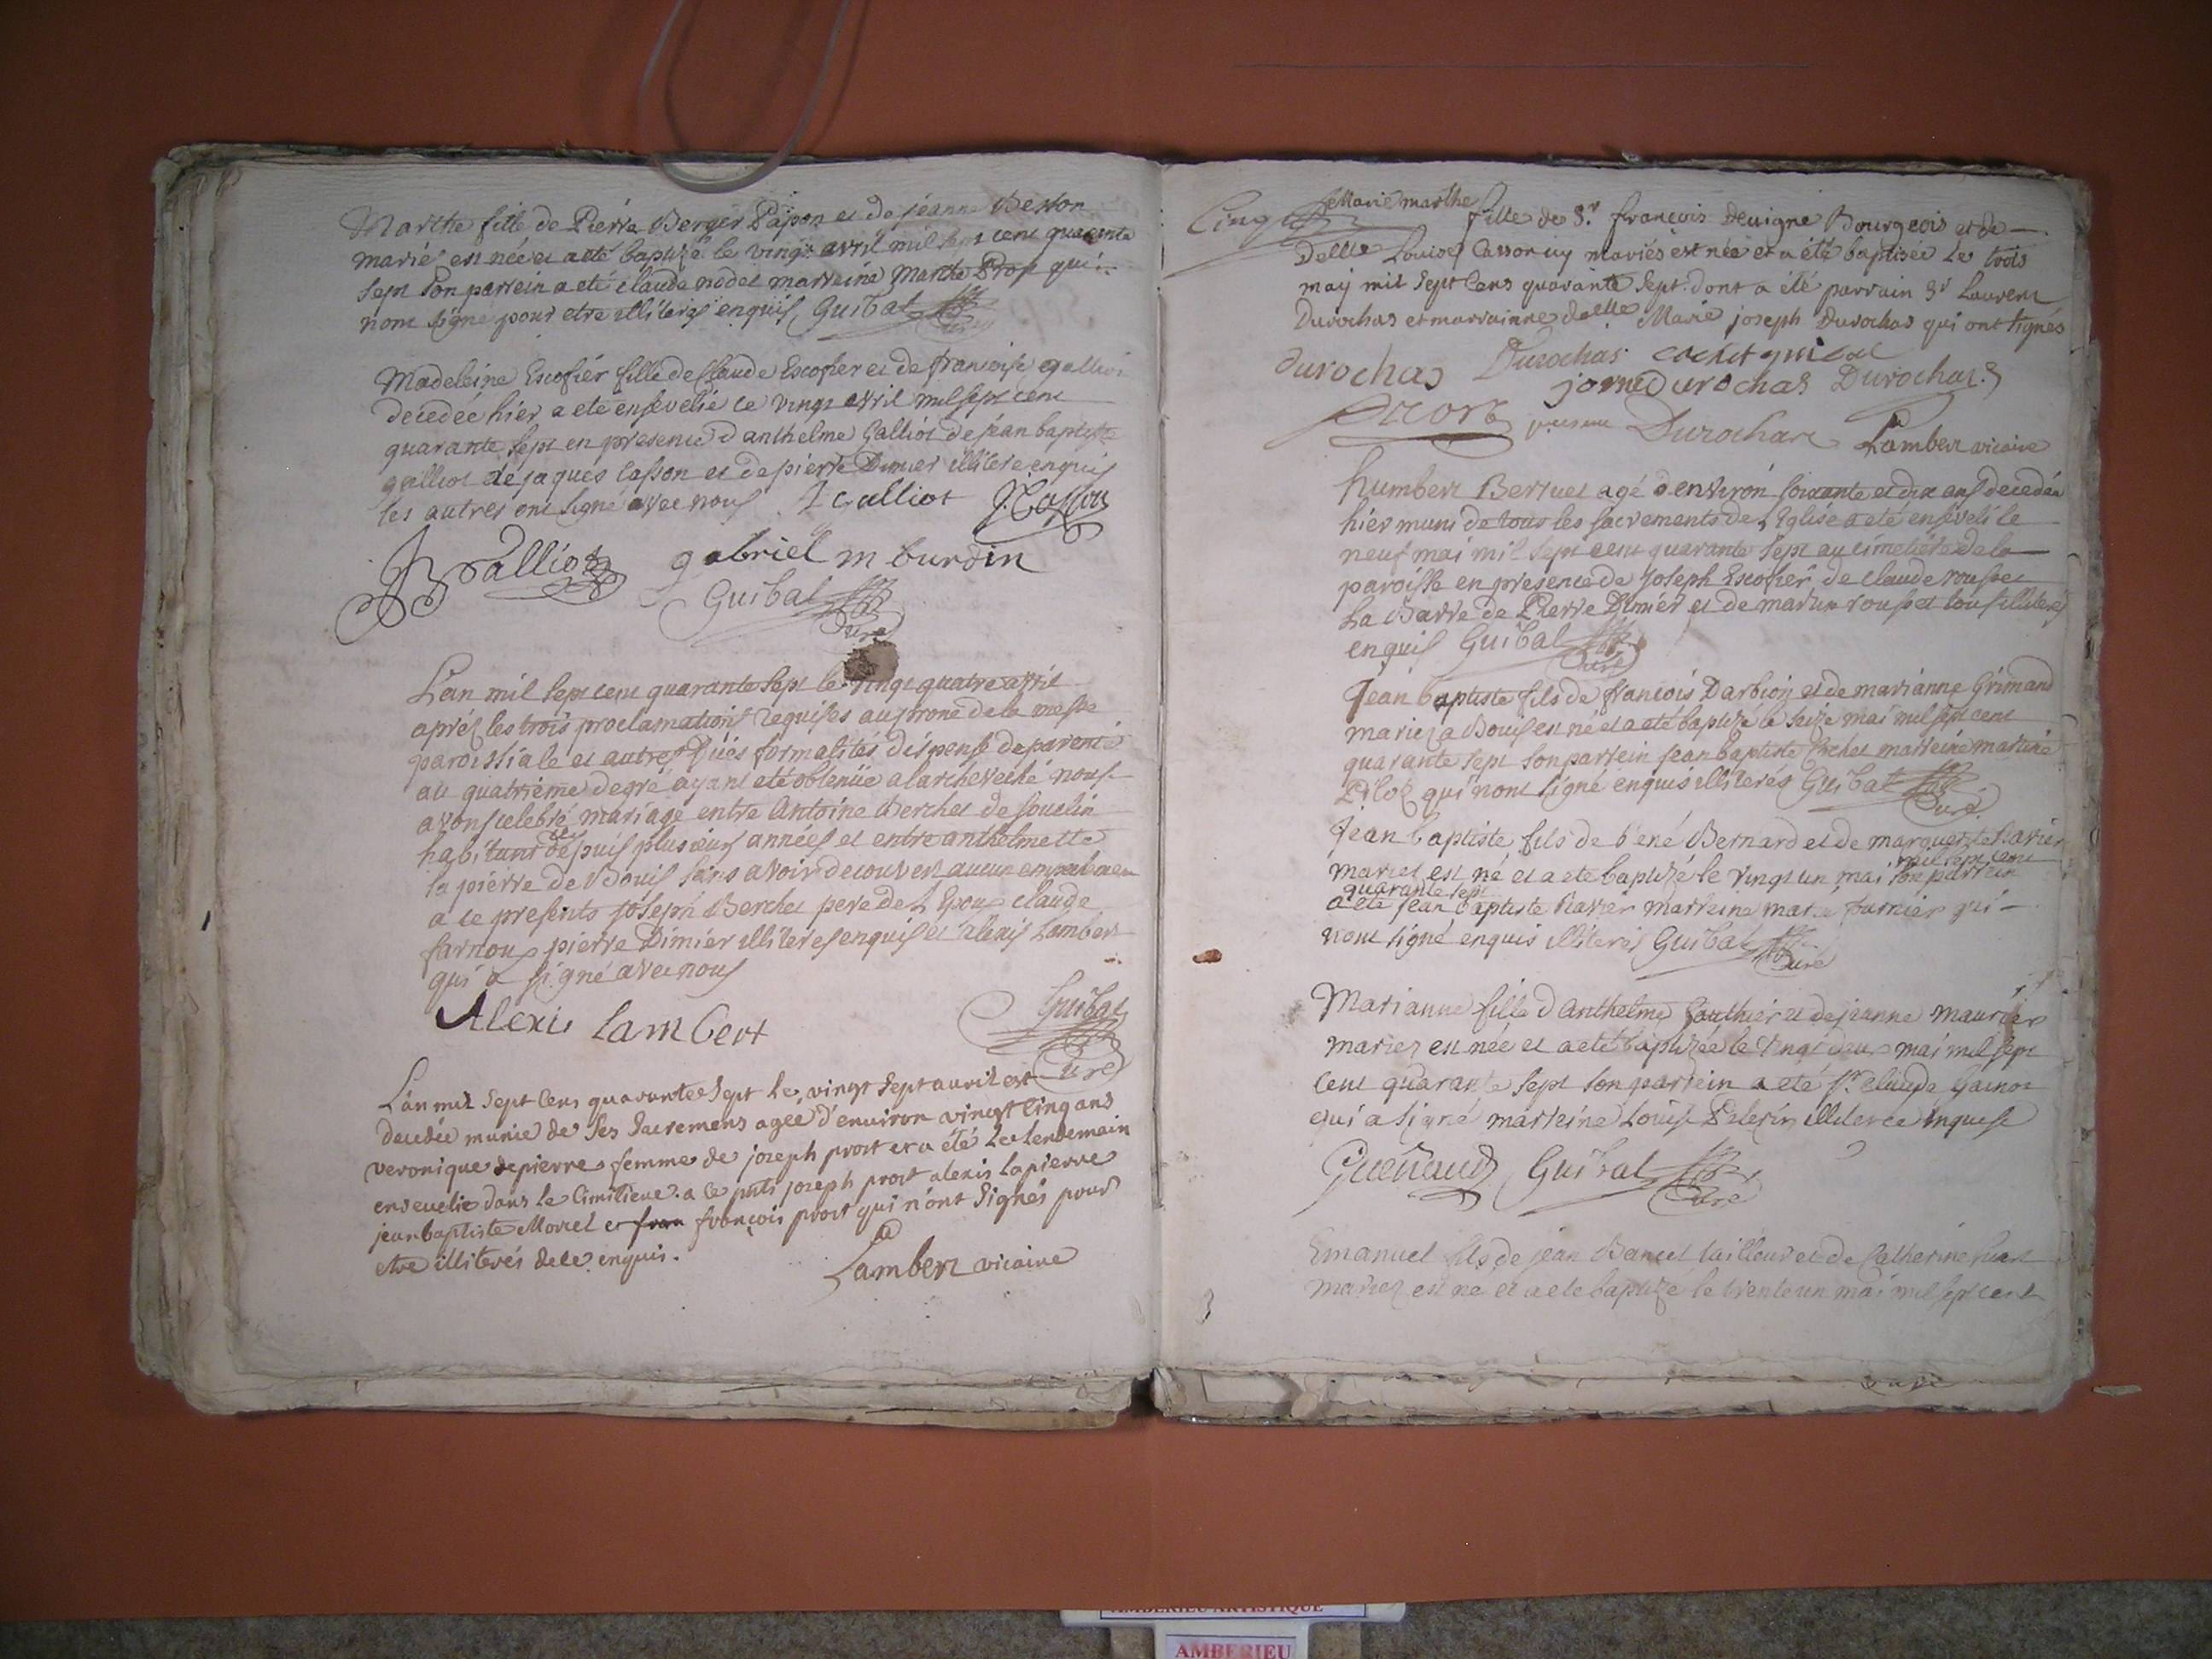 Marthe fille de Pierre Berger Papon et de jeanne Besson
marié est née et a eté baptizé le vingt avril mil sept cent quarente
sept son parrein a eté claude nodet marreine Marthe Prost qui
nont signe pour etre illiteres enquis Guibal
Curé
Madeleine Escofier fille de Claude Escofier et de francoise galliot
decedée hier a eté ensevelie le vingt avril mil sept cent
quarante sept en presence d anthelme Galliot de jean baptiste
galliot de jaques Casson et de pierre Dimier illitere enquis
les autres ont signé avec nous A Galliot J. Casson
JBGalliot gabriel m burdin
Guibal
Curé
L'an mil sept cent quarante sept le vingt quatre avril
aprés les trois proclamations requises au prone de la messe
paroissiale et autres formalités dispense de parenté
au quatriéme degré ayant eté obtenüe a larchevesché nous
avons celebré mariage entre Antoine Berchet de souclin
habitant depuis plusieurs années et entre anthelmette
la pierre de Bouis sans avoir decouvert aucun
a ce presents joseph Berchet pere de L Epoux claude
farnoux pierre Dimier illiteres enquis et alexis Lambert
qui a signé avec nous
Alexis lambert Guibal
Curé
L'an mil sept cens quarante sept le vingt sept avril est
decedée munie de ses sacremens agée d'environ vingt cinq ans
veronique depierre femme de joseph prost et a été le lendemain
ensevelie dans le Cimitiere. a ce pnts joseph prost alexis lapierre
jean baptiste Morel et fran françois prost qui n'ont signés pour
etre illiterés de ce enquis.
Lambert vicaire
Marie marthe
fille de Sr. françois Devigne Bourgeois et de
Delle Louise mariés est née et a été baptisée le trois
may mil sept cens quarante sept. dont a été parrain Sr Laurent
Durochas et marrainne delle Marie joseph Durochas qui ont signés
durochas Durochas
Durochas Durochas
Durochas Lambert vicaire
humbert Berruet agé d environ soixante et dix ans decedée
hier muni de tous les sacrements de L Eglise a eté enseveli le
neuf mai mil sept cent quarante sept au cimetiére de la
paroisse en presence de joseph Escofier de claude rousset
La Barre de Pierre Dimier et de martin rousset tous illiteres
enquis Guibal
Curé
Jean baptiste fils de francois Darbion et de marianne Grimand
mariez a Bouis est né et a eté baptizé le seize mai mil sept cent
quarante sept son parrein jean baptiste marreine
Piloz qui nont signé enquis illiteres Guibal
Curé
Jean baptiste fils de bené Bernard et de marguerite
mil sept cent
mariez est né et a eté baptizé le vingt un mai son parrein
quarante sept
a eté jean baptiste marreine marie fournier qui
nont signé enquis illiteres Guibal
Curé
Marianne fille d Anthelme Gauthier et de jeanne maurier
mariez est née et a eté baptizée le vingt deux mai mil sept
cent quarante sept son parrein a eté Sr. claude
qui a signé marreine Louise illiteree enquise
Guibal
Curé
Emanuel fils de jean Bancel tailleur et de Catherine
mariez est né et a eté baptizé le trente un mai mil sept cent
AMBERIEU ARTISTIQUE
AMBERIEU